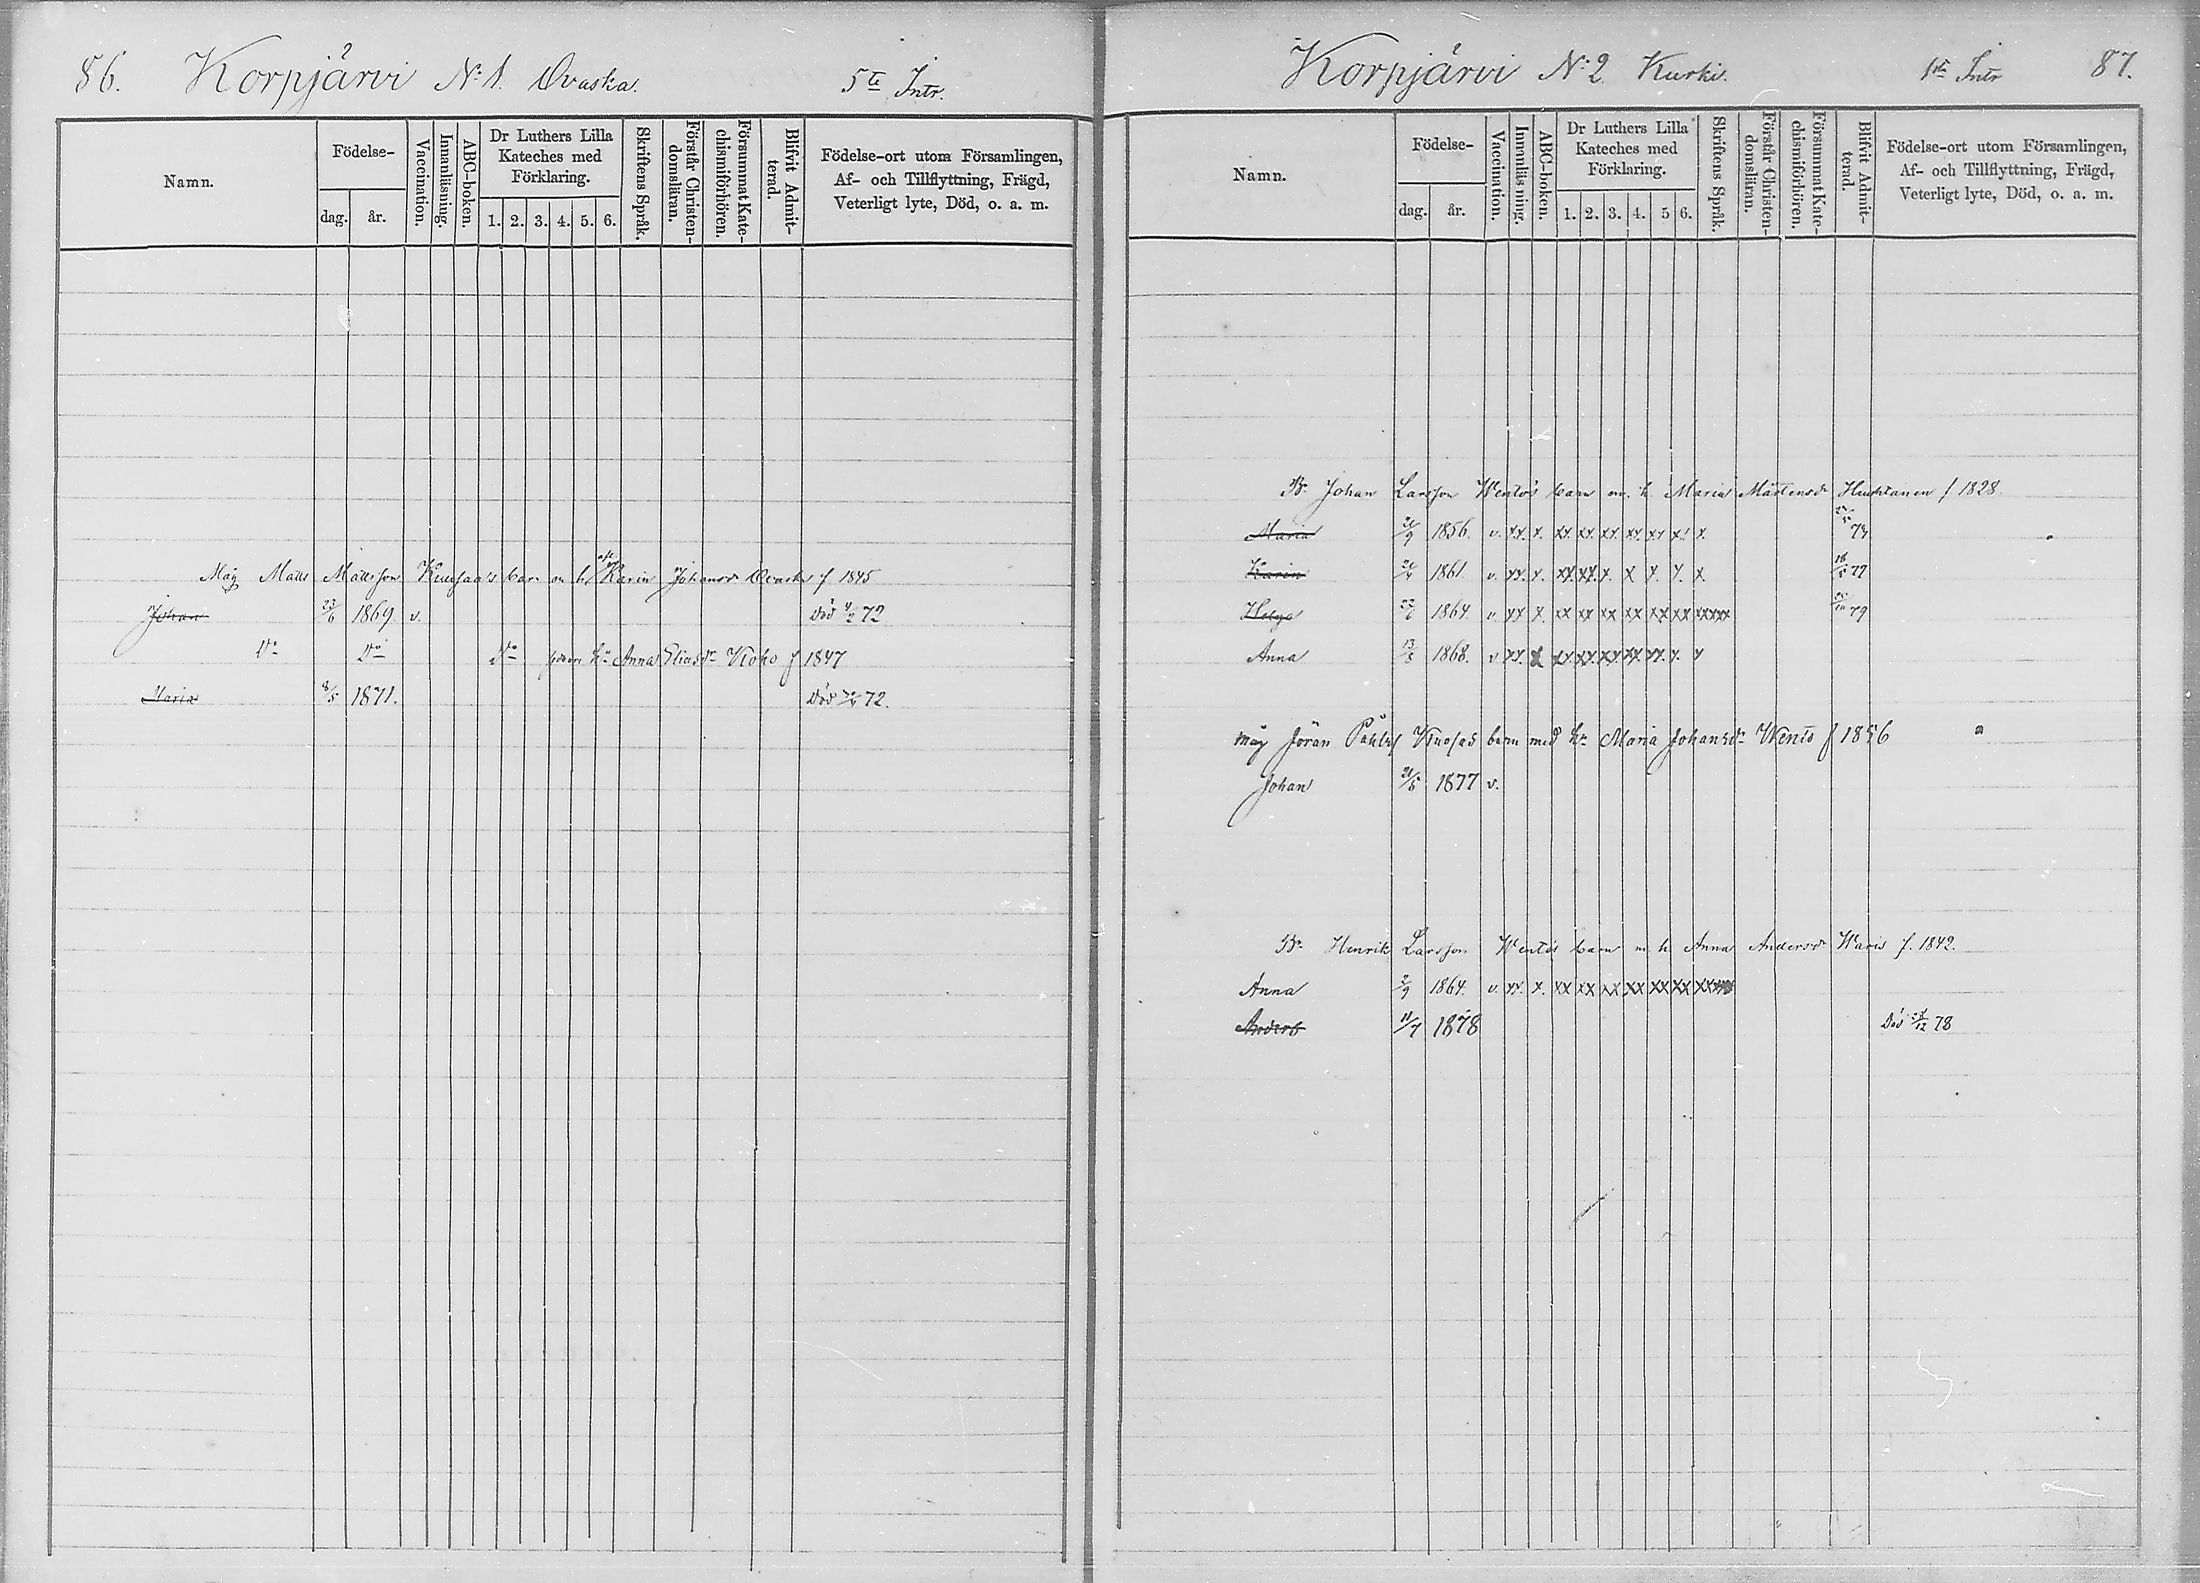 86. Korpjärvi N:1. Ovaska. 5te Intr.
Namn.
Födelse-
dag. år.
Vaccination.
Innanläsning.
ABC-boken.
Dr Luthers Lilla
Kateches med
Förklaring.
1. 2. 3. 4. 5. 6.
Skriftens Språk.
Förstår Christen-
domsläran.
Försummat Kate-
chismiförhören.
Blifvit Admit-
terad.
Födelse-ort utom Församlingen,
Af- och Tillflyttning, Frägd,
Veterligt lyte, Död, o. a. m.
Måg Matts Mattsson Kuosa's barn m h. Karin Johansdr Ovaska f 1845
Johan 23/6 1869. v. Död 4/2 72
Do Do Do h:u Anna Eliasdr Koho f 1847
Maria 8/5 1871. Död 72.
Korpjärvi N:2 Kurki. 1ste Intr 87.
Namn.
Födelse-
dag. år.
Vaccination.
Innanläsning.
ABC-boken.
Dr Luthers Lilla
Kateches med
Förklaring.
1. 2. 3. 4. 5 6.
Skriftens Språk.
Förstår Christen-
domsläran.
Försummat Kate-
chismiförhören.
Blifvit Admit-
terad.
Födelse-ort utom Församlingen,
Af- och Tillflyttning, Frägd,
Veterligt lyte, Död, o. a. m.
Br. Johan Larsson Wento's barn m. h. Maria Mårtensdr Huuhtanen f 1828.
Maria 1856. v. xx. x. xx. xx. xx. xx. xx x! x. 74
Karin 1861. v. xx. x. xx. xx. x. x x. x. x. 77
Helga 1864. v. xx x xx xx xx xx xx xx xxxxx 79
Anna 13/8 1868. v xx. x xx. xx. xx. xx. xx. x. x
Måg Jöran Påhls Kuosas barn med h:u Maria Johansdr Wento f 1856
Johan 21/5 1877 v.
Br Henrik Larsson Wento's barn m h Anna Andersdr Waris f. 1842.
Anna 2/9 1864. v. xx. x. xx xx xx xx xx xx xxxxx
Anders 11/7 1878 Död 78